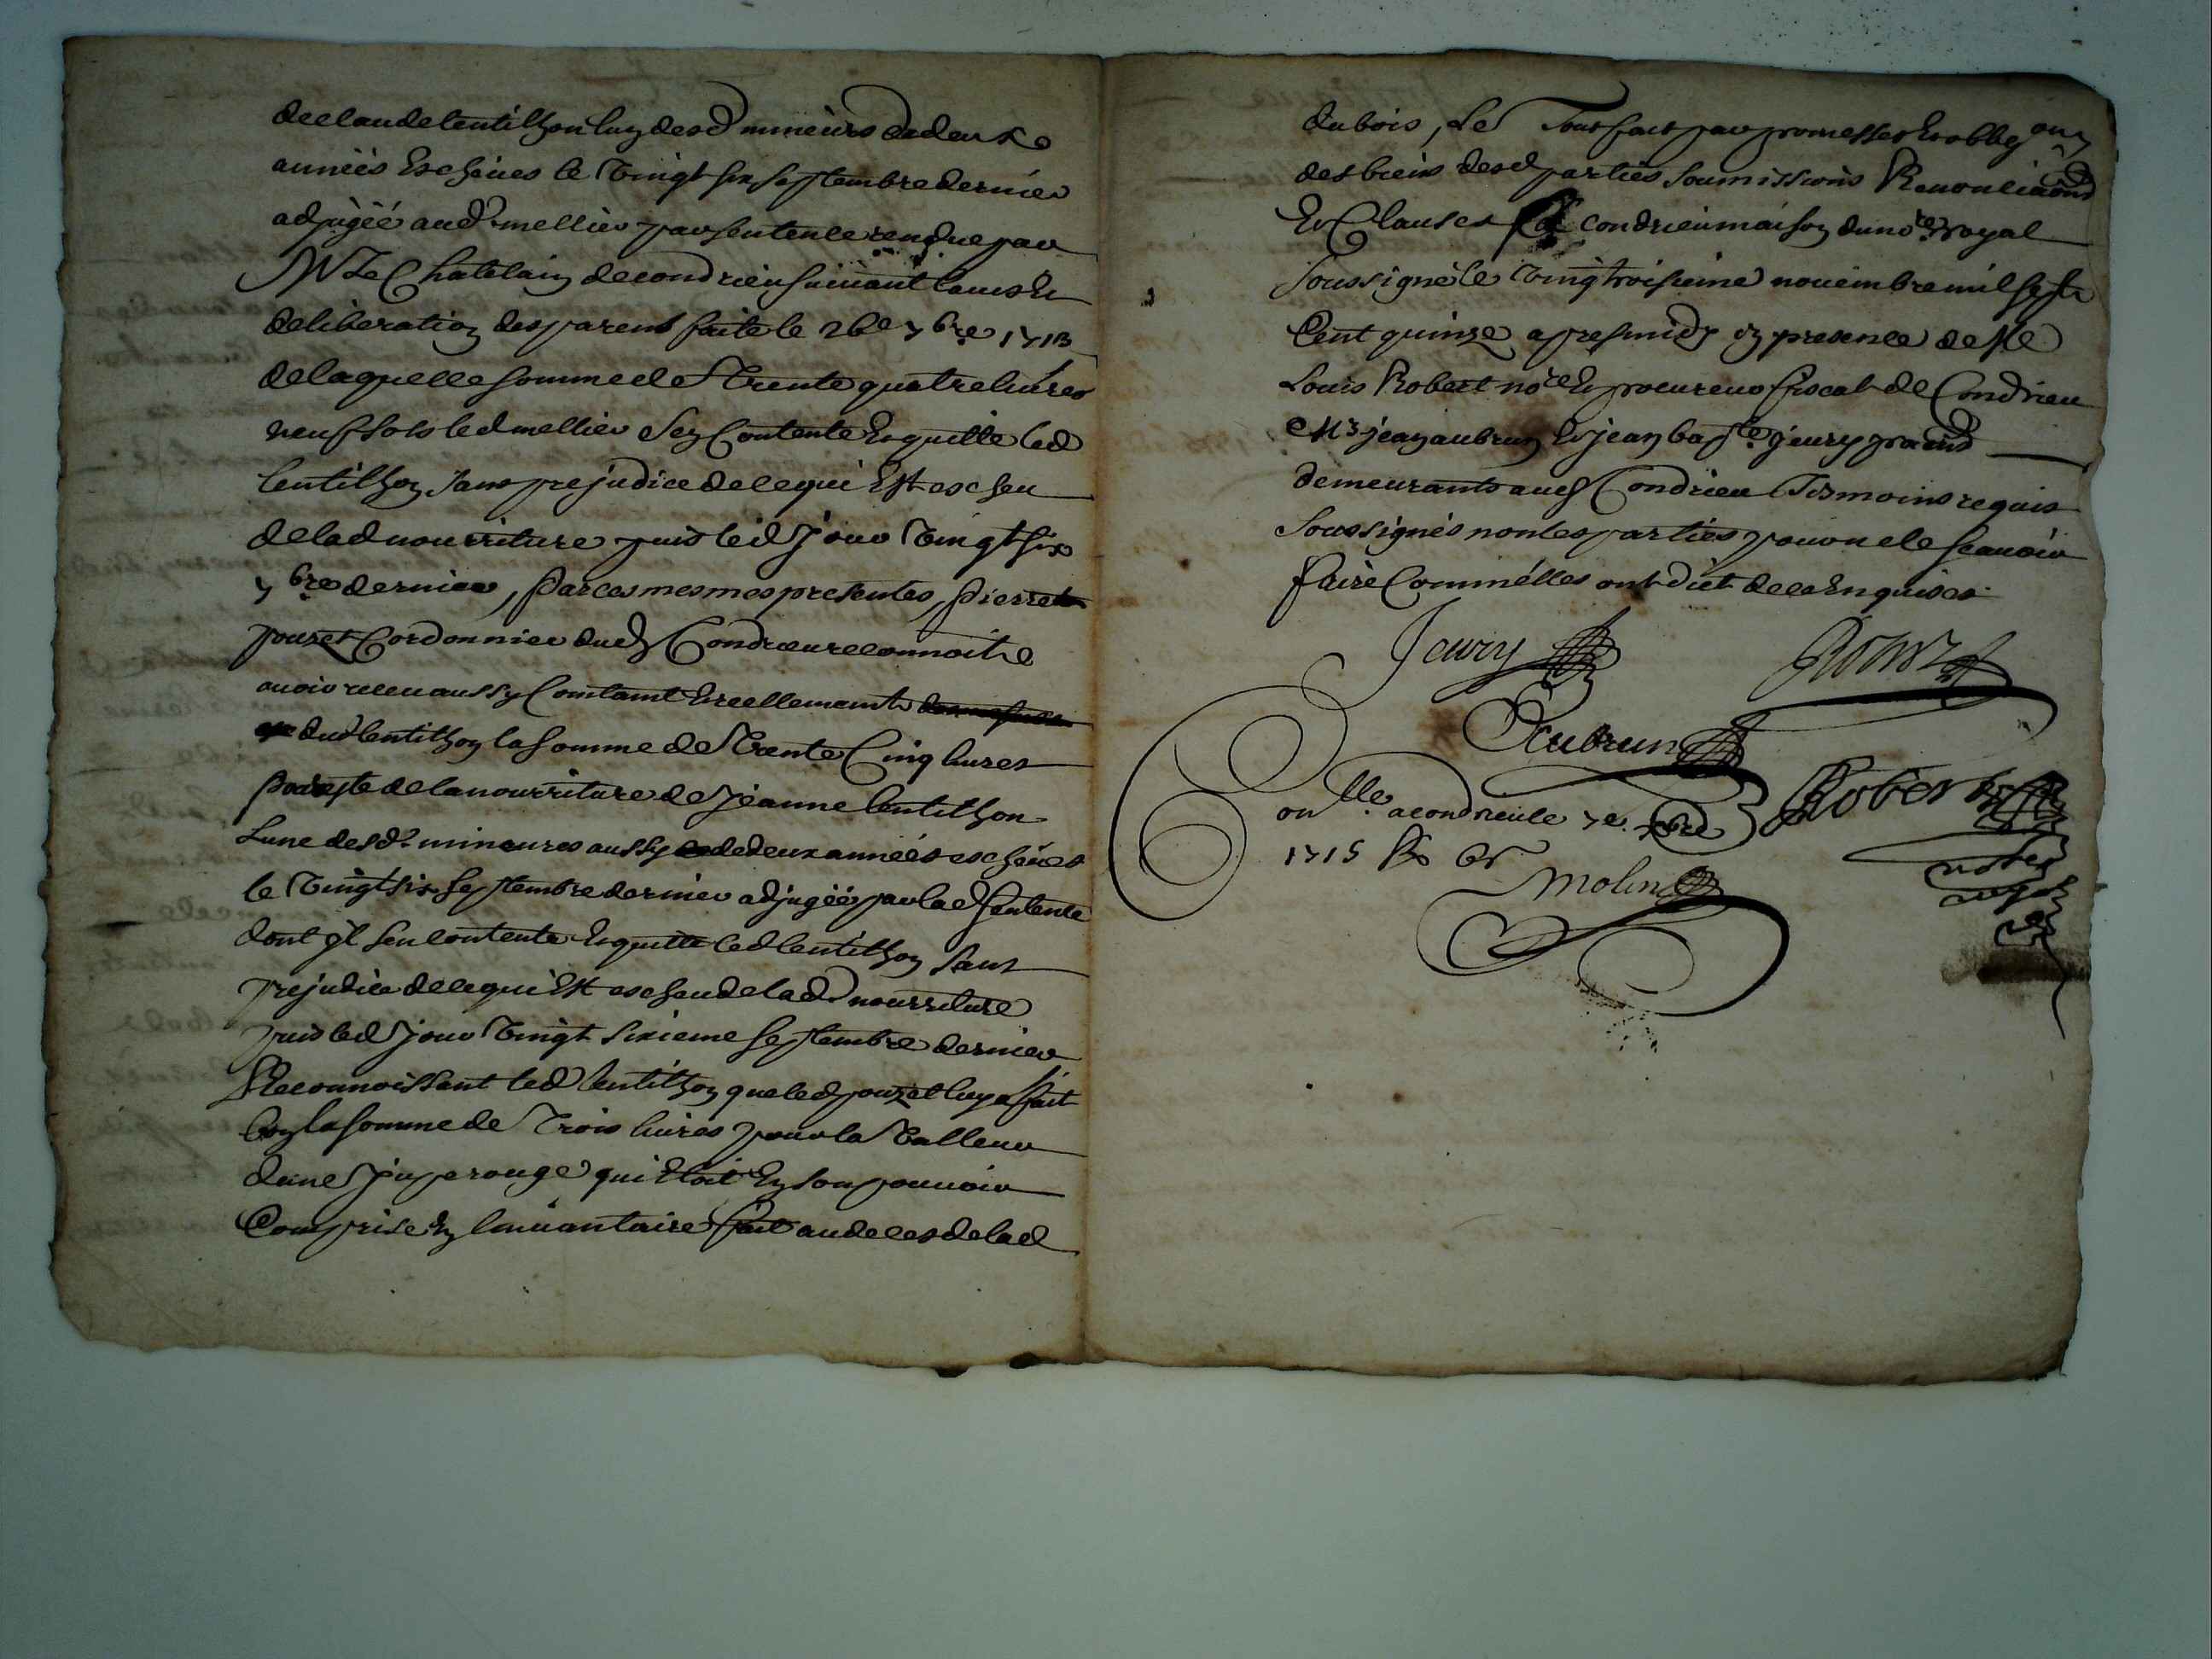 de claude lentilhon luy desd mineurs de deux
années escheues le vingt six septembre dernier
adjugée aud. mellier par sentence rendue par
Mr Le Chatelain de condrieu suivant lauis et
deliberation des parens faite le 26e 7bre 1713
de laquelle somme de Trente quatre liures
neuf sols led mellier sen Contente et quitte led
lentilhon sans prejudice de ce qui Est escheu
de lad nourriture puis led jour vingt six
7bre dernier, Par ces mesmes presentes, Pierre
pouzet Cordonnier dud Condrieu reconnoit
auoir receu aussy Comtamt et reellemamt
dud lentilhon la somme de Trente Cinq liures
Pour reste de la nourriture de jeanne lentilhon
Lune desd. mineures aussy de deux années escheues
le vingt six septembre dernier adjugée par lad sentence
dont jl sen contente et quitte led lentilhon sans
prejudice de ce qui Est escheu de lad. nourriture
puis led jour vingt sixieme septembre dernier
Reconnoissant led lentilhon que led pouzet luy a fait
bon la somme de Trois liures pour la valleur
dune jupe rouge qui Etoit En son pouuoir
Comprise En linuantaire fait au deces de lad
dubois, Le Tout fait par promesses et obligaons
des biens desd parties soumissions Renonciaons
Et Clauses fait a condrieu maison du nore royal
soussigné le vingtroisieme nouembre mil sept
Cent quinze apres midy en presence de Me
Louis Robert nore et procureur fiscal de Condrieu
Mrs jean aubrun et jean bapte jeury praens
demeurants aud Condrieu Tesmoins requis
soussignés non les parties pour ne le scauoir
faire Comme elles ont dict de ce Enquises
Jeury
Aubrun
Robert
onlle a condrieu le 7e xbre
1715
Molin
notre
royal